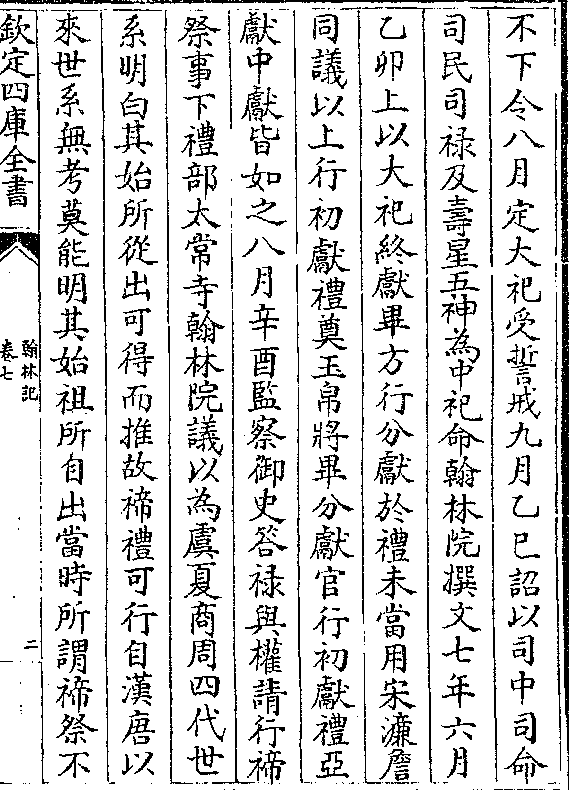 不下令八月定大祀受誓戒九月乙巳詔以司中司命
司民司祿及壽星五神為中祀命翰林院撰文七年六月
乙卯上以大祀終獻畢方行分獻於禮未當用宋濂詹
同議以上行初獻禮奠玉帛將畢分獻官行初獻禮亞
獻中獻皆如之八月辛酉監察御史答祿與權請行禘
祭事下禮部太常寺翰林院議以為虞夏商周四代世
系明白其始所從出可得而推故禘禮可行自漢唐以
來世系無考莫能明其始祖所自出當時所謂禘祭不
欽定四庫全書
翰林記
卷七
二